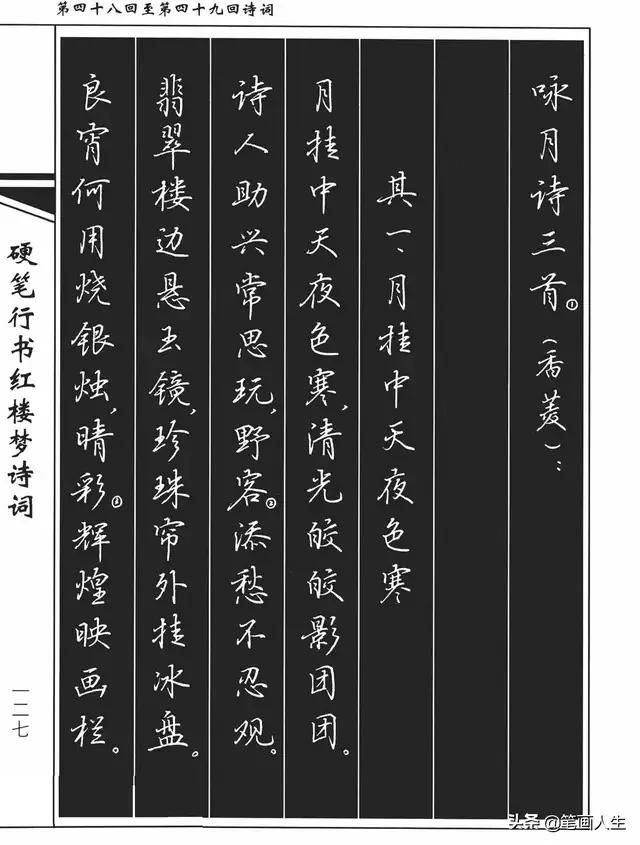 第四十八回至第四十九回诗词
咏月诗三首①（香菱）：
其一、月挂中天夜色寒
月挂中天夜色寒，清光皎皎影团团。
诗人助兴常思玩，野客②添愁不忍观。
翡翠楼边悬玉镜，珍珠帘外挂冰盘。
良宵何用烧银烛，晴彩③辉煌映画栏。
硬笔行书红楼梦诗词
一二七
头条@笔画人生